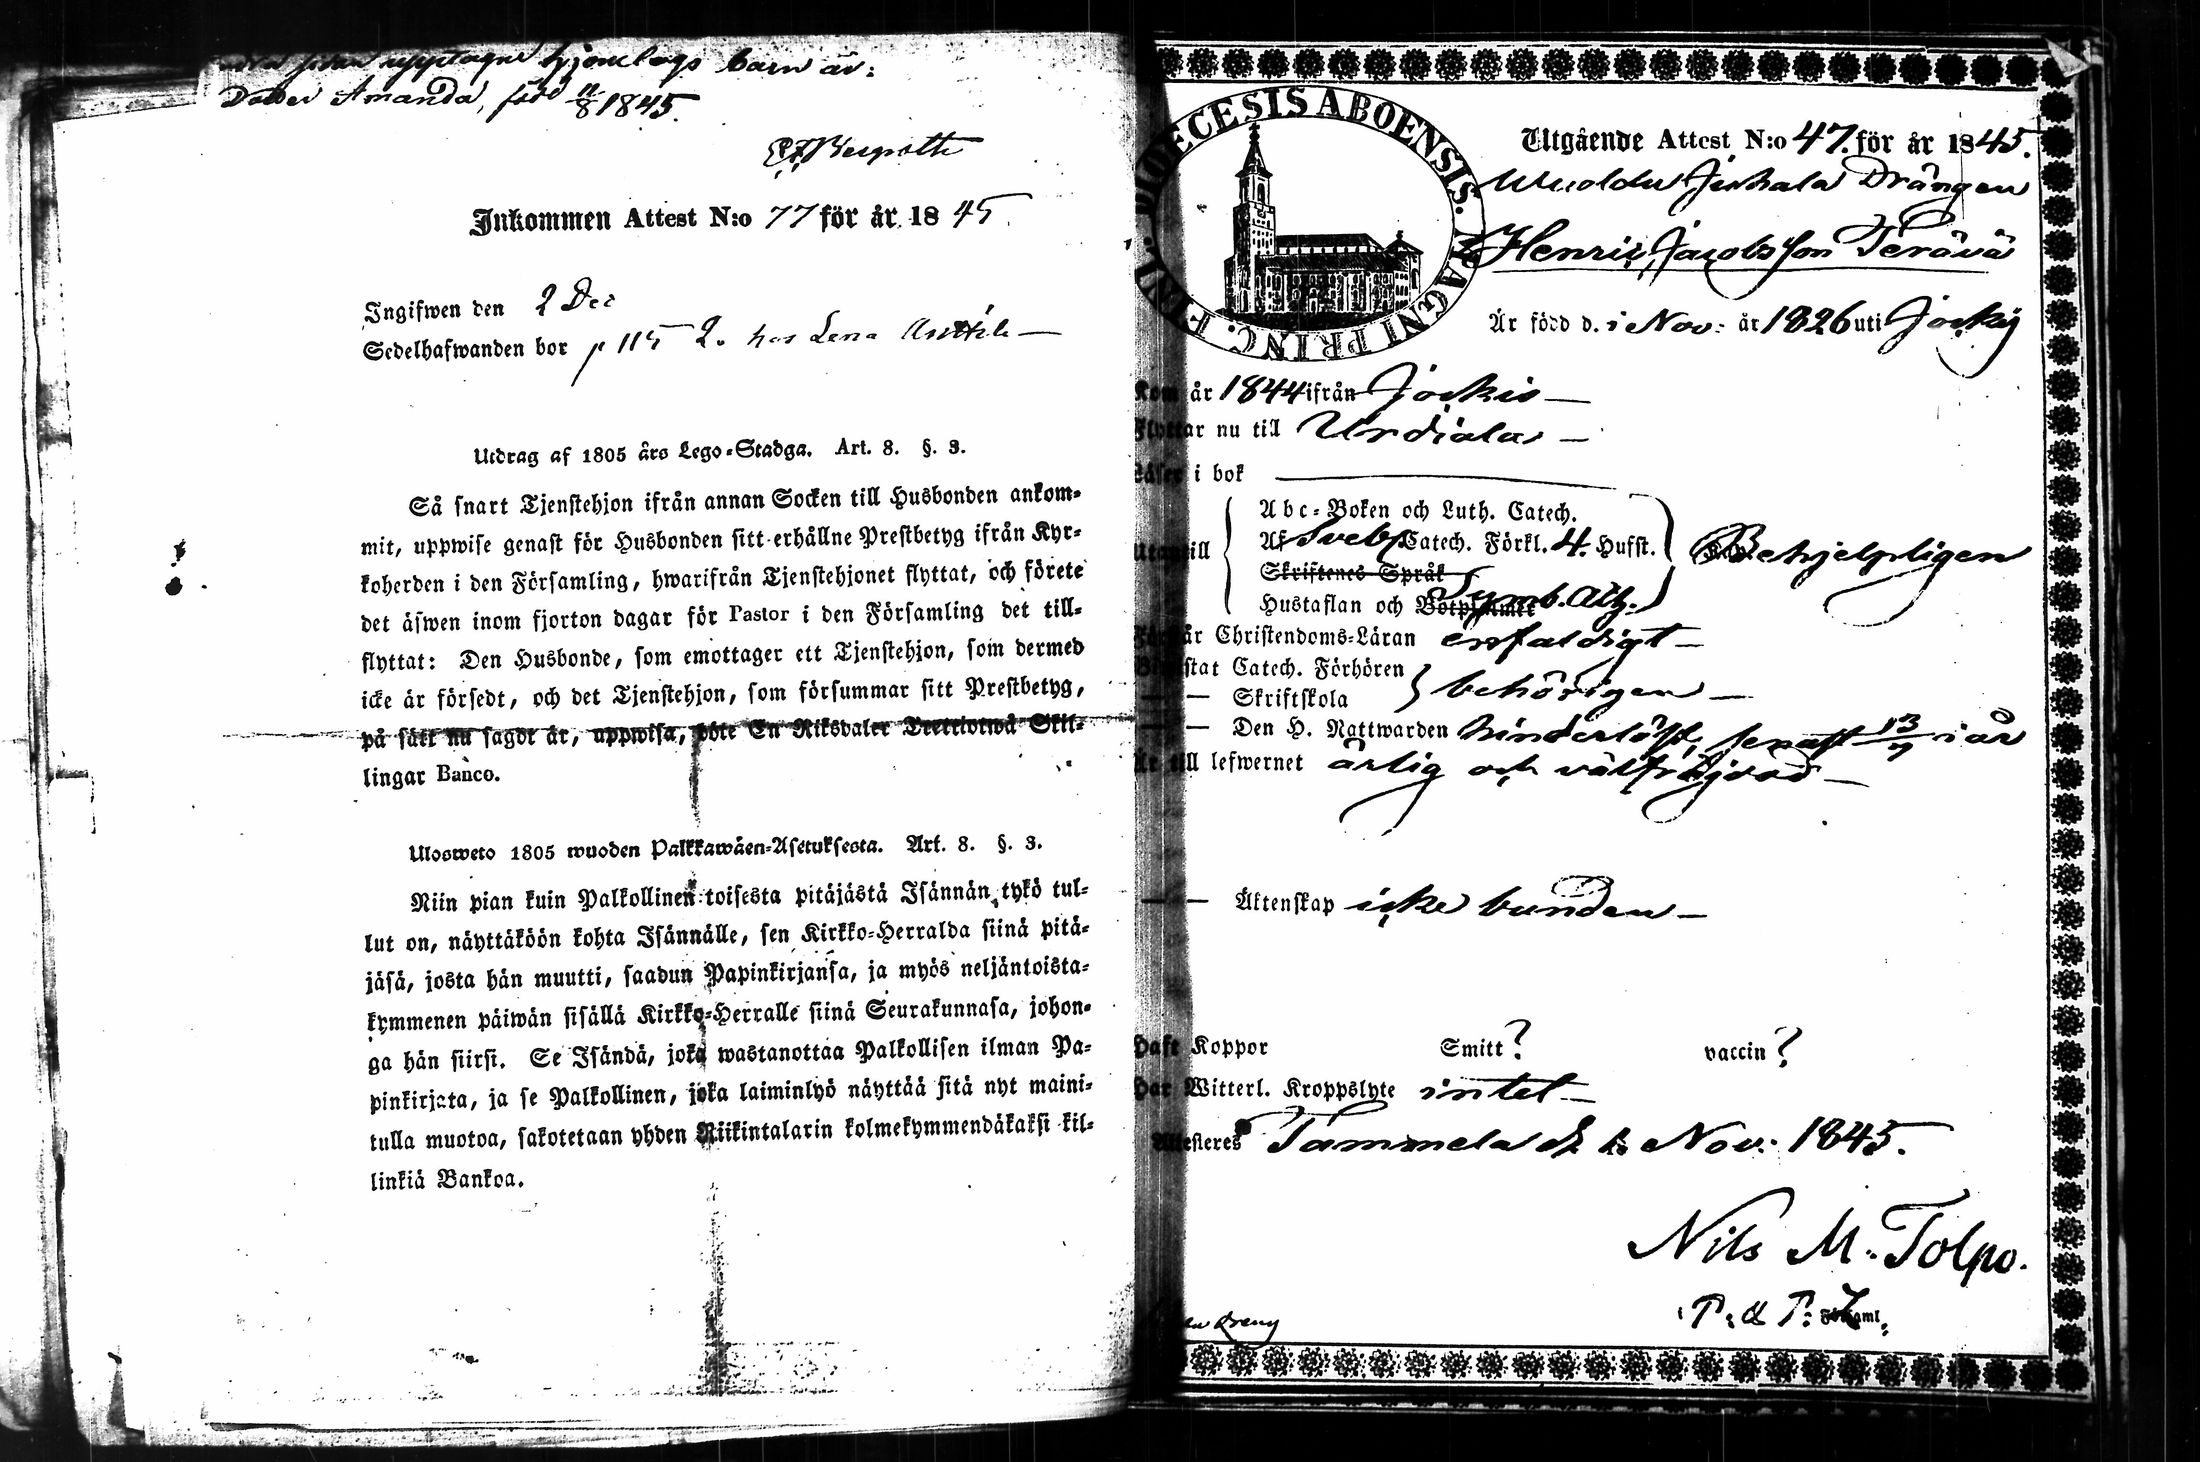 upptagne hjonelags barn är:
Dotter Amanda, född 11/8 1845.
Inkommen Attest N:o 77 för år 1845
Ingifwen den 2 Dec
Sedelhafwanden bor p 115 2. hos Lena Anttila —
Utdrag af 1805 års Lego-Stadga. Art. 8. §. 3.
Så snart Tjenstehjon ifrån annan Socken till Husbonden ankom-
mit, uppwise genast för Husbonden sitt erhållne Prestbetyg ifrån Kyr-
koherden i den Församling, hwarifrån Tjenstehjonet flyttat, och förete
det äfwen inom fjorton dagar för Pastor i den Församling det till-
flyttat: Den Husbonde, som emottager ett Tjenstehjon, som dermed
icke är försedt, och det Tjenstehjon, som försummar sitt Prestbetyg,
på sätt nu sagdt är, uppwisa, böte En Riksdaler Trettiotwå Skil-
lingar Banco.
Ulosweto 1805 wuoden Palkkawäen-Asetuksesta. Art. 8. §. 3.
Niin pian kuin Palkollinen toisesta pitäjästä Isännän tykö tul-
lut on, näyttäköön kohta Isännälle, sen Kirkko-Herralda siinä pitä-
jäsä, josta hän muutti, saadun Papinkirjansa, ja myös neljäntoista-
kymmenen päiwän sisällä Kirkko-Herralle siinä Seurakunnasa, johon-
ga hän siirsi. Se Isändä, joka wastanottaa Palkollisen ilman Pa-
pinkirjata, ja se Palkollinen, joka laiminlyö näyttää sitä nyt maini-
tulla muotoa, sakotetaan yhden Riikintalarin kolmekymmendäkaksi kil-
linkiä Bankoa.
DIOECESIS ABOENSIS. MAGNI PRINC. FINL.
Utgående Attest N:o 47. för år 1845.
Drängen
Henric Jacobsson Terävä
Är född d. i Nov: år 1826 uti Jockis
Kom år 1844 ifrån Jockis —
Flyttar nu till Urdiala —
Läser i bok
Abc-Boken och Luth. Catech.
Utantill Af Sveb. Catech. Förkl. 4. Hufst. Behjelpligen
Skriftenes Språk
Hustaflan och Botpsalmer Symb. Ath.
Förstår Christendoms-Läran enfaldigt —
Biwistat Catech. Förhören
— — Skriftskola behörigen —
— — Den H. Nattwarden hinderlöst, senast 13/7 i år
Är till lefwernet ärlig och välfräjdad —
— — Äktenskap icke bunden —
Haft Koppor Smitt? vaccin?
Har Witterl. Kroppslyte intet —
Attesteres Tammela d. Nov: 1845.
Nils M. Tolpo.
P. & P. i Församl.